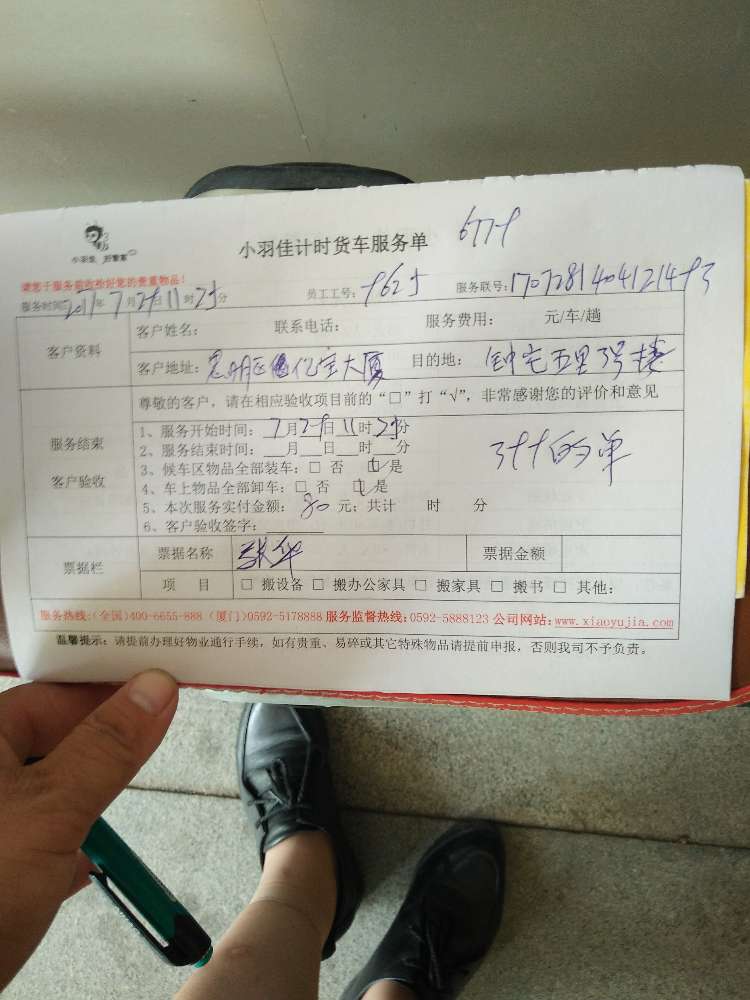 小羽佳 好管家
小羽佳计时货车服务单
请您于服务前收检好您的贵重物品!
服务时间: 年7月29日11时25分 员工工号: 服务联号:
客户资料
客户姓名: 联系电话: 服务费用: 元/车/趟
客户地址:思明区亿宝大厦 目的地:钟宅五里3号楼
服务结束
客户验收
尊敬的客户,请在相应验收项目前的“□”打“√”,非常感谢您的评价和意见
1、服务开始时间:7月29日11时25分
2、服务结束时间:__月__日__时__分
3、候车区物品全部装车:□ 否 ☑是
4、车上物品全部卸车:□ 否 ☑是
5、本次服务实付金额:80 元;共计 时 分
6、客户验收签字:
的单
票据栏
票据名称 张华 票据金额
项 目 □ 搬设备 □ 搬办公家具 □ 搬家具 □ 搬书 □ 其他:
服务热线:(全国)400-6655-888 (厦门)0592-5178888 服务监督热线:0592-5888123 公司网站:www.xiaoyujia.com
温馨提示:请提前办理好物业通行手续,如有贵重、易碎或其它特殊物品请提前申报,否则我司不予负责。